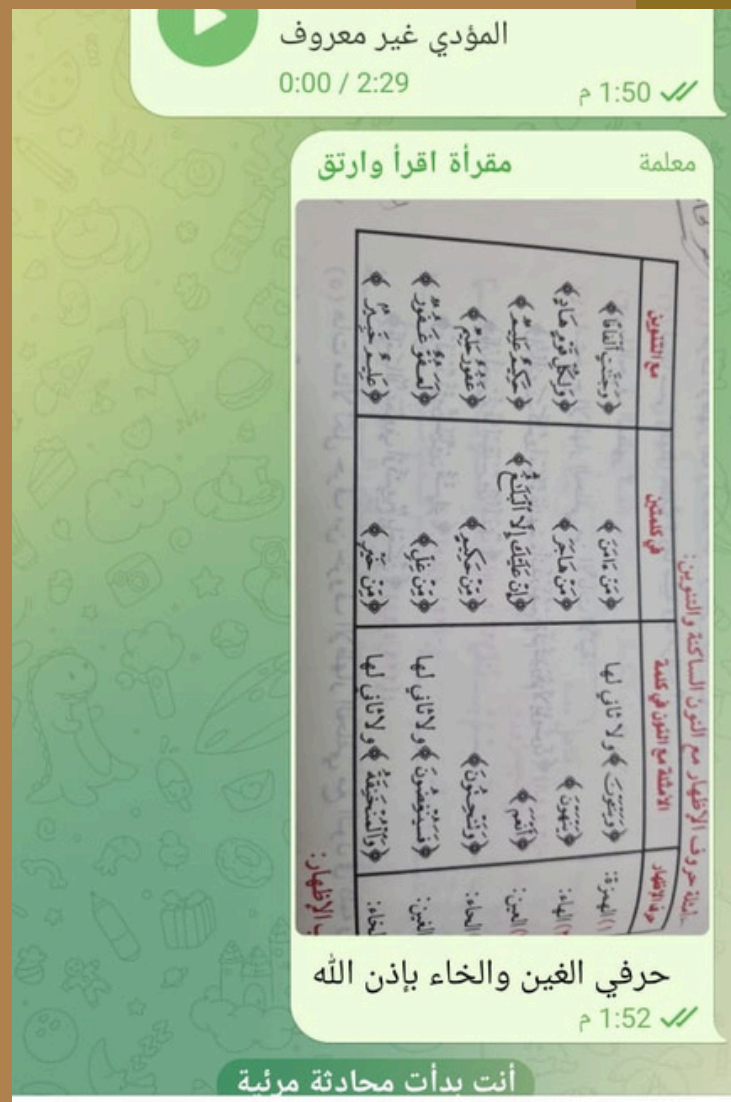 المؤدي غير معروف
0:00 / 2:29
1:50 م
معلمة
مقرأة اقرأ وارتق
أمثلة حروف الإظهار مع النون الساكنة والتنوين:
حرف الإظهار الأمثلة مع النون في كلمة في كلمتين مع التنوين
١) الهمزة: ﴿وَيَنْـَٔوْنَ﴾ ولا ثاني لها ﴿مَنْ ءَامَنَ﴾ ﴿وَجَنَّـٰتٍ أَلْفَافًا﴾
الهاء: ﴿يَنْهَوْنَ﴾ ﴿مَنْ هَاجَرَ﴾ ﴿وَلِكُلِّ قَوْمٍ هَادٍ﴾
العين: ﴿أَنْعَمَ﴾ ﴿إِنْ عَلَيْكَ إِلَّا ٱلْبَلَـٰغُ﴾ ﴿حَكِيمٌ عَلِيمٌ﴾
الحاء: ﴿وَتَنْحِتُونَ﴾ ﴿مِّنْ حَكِيمٍ﴾ ﴿غَفُورٌ حَلِيمٌ﴾
الغين: ﴿فَسَيُنْغِضُونَ﴾ ولا ثاني لها ﴿مِّنْ غِلٍّ﴾ ﴿لَعَفُوٌّ غَفُورٌ﴾
الخاء: ﴿وَٱلْمُنْخَنِقَةُ﴾ ولا ثاني لها ﴿مِّنْ خَيْرٍ﴾ ﴿عَلِيمٌ خَبِيرٌ﴾
الإظهار:
حرفي الغين والخاء بإذن الله
1:52 م
أنت بدأت محادثة مرئية